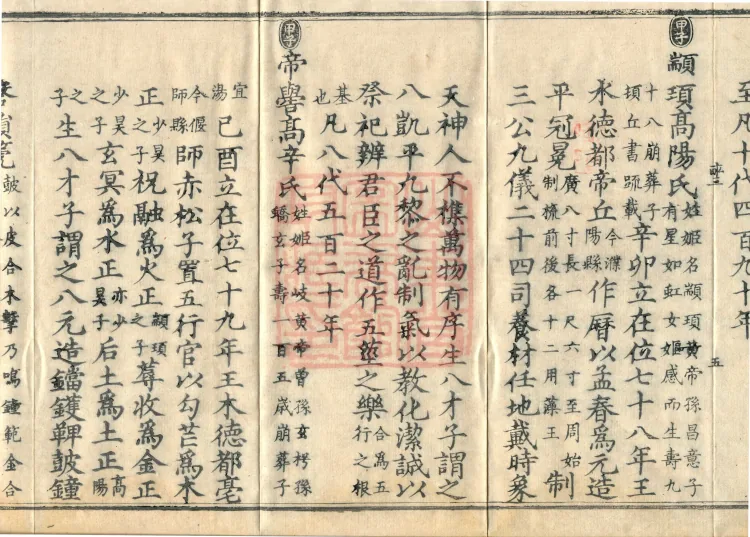 至凡十代四百九十年
甲子
顓頊高陽氏姓姬名顓頊黃帝孫昌意子有星如虹女嫗感而生壽九
十八崩葬子頊丘書䟽載辛卯立在位七十八年王
水德都帝丘今濮陽縣作曆以孟春爲元造
平冠冕廣八寸長一尺六寸至周始制㻌前後各十二用藻王制
三公九儀二十四司養材任地戴時象
天神人不雜萬物有序生八才子謂之
八凱平九黎之亂制氣以教化潔誠以
祭祀辨君臣之道作五莖之樂合爲五行之根
基也凡八代五百二十年
甲子
帝嚳高辛氏姓姬名岐黃帝曾孫玄枵孫蟜玄子壽一百五歲崩葬子
宜湯己酉立在位七十九年王木德都亳
今偃師縣師赤松子置五行官以勾芒爲木
正少昊之子祝融爲火正顓頊之子蓐收爲金正
少昊之子玄冥爲水正亦少昊子后土爲土正高陽
之子生八才子謂之八元造鐺鑊鞞鼓鐘
鼓以皮合木擊乃鳴鐘範金合
五